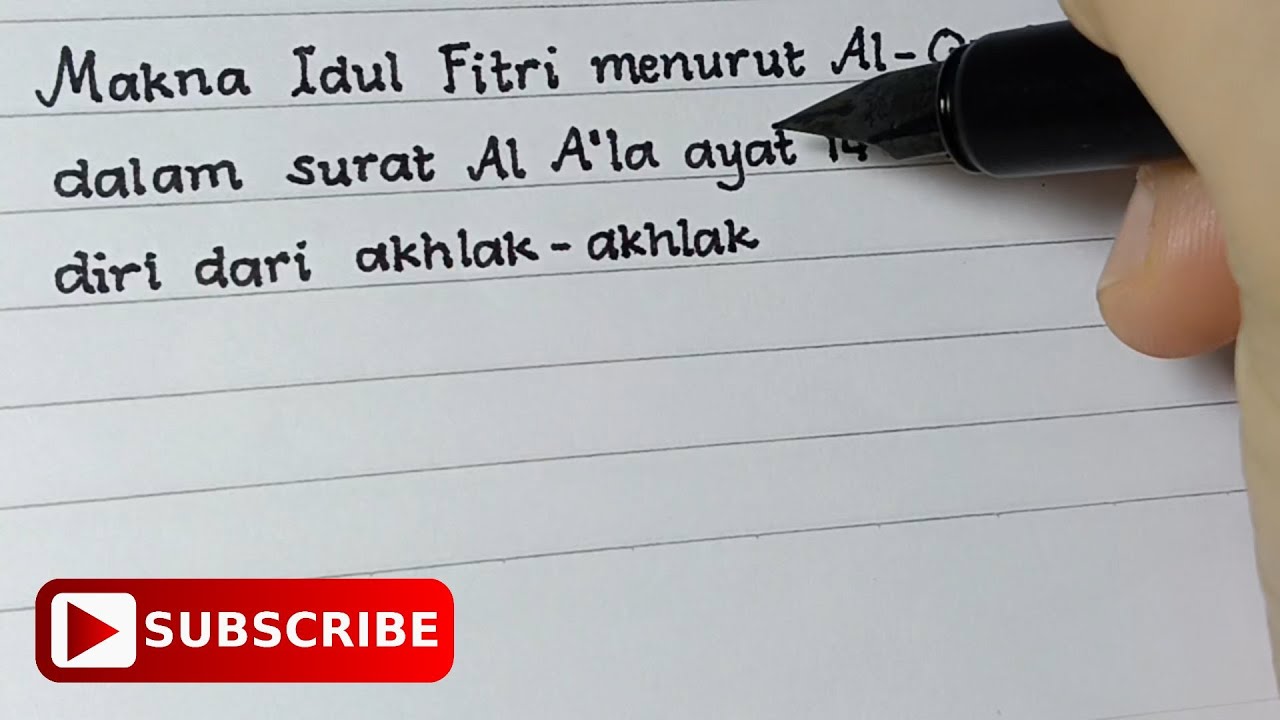 Makna Idul Fitri menurut Al-
dalam surat Al A'la ayat 14
diri dari akhlak-akhlak
SUBSCRIBE